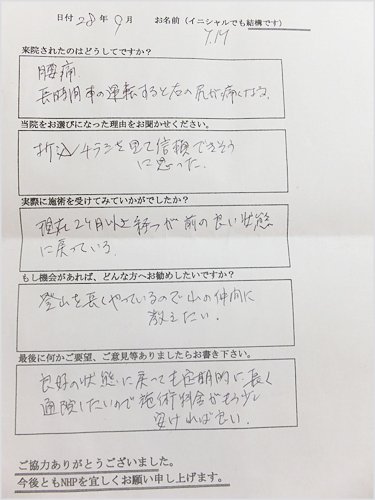 日付 28 年 9 月 お名前（イニシャルでも結構です）
Y.M
来院されたのはどうしてですか？
腰痛
長時間車の運転すると右の尻が痛くなる。
当院をお選びになった理由をお聞かせください。
折込チラシを見て信頼できそう
に思った。
実際に施術を受けてみていかがでしたか？
現在2ヶ月以上経つが前の良い状態
に戻っている。
もし機会があれば、どんな方へお勧めしたいですか？
登山を長くやっているので山の仲間に
教えたい。
最後に何かご要望、ご意見等ありましたらお書き下さい。
良好の状態に戻っても定期的に長く
通院したいので施術料金がもう少し
安ければ良い。
ご協力ありがとうございました。
今後ともNHPを宜しくお願い申し上げます。